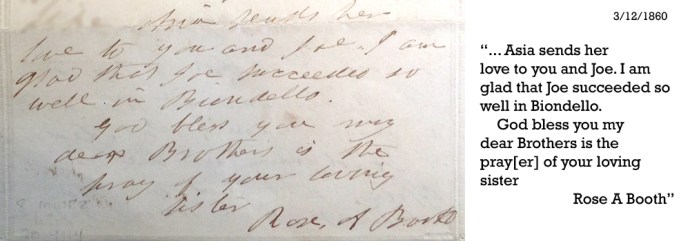 Asia sends her
love to you and Joe. I am
glad that Joe succeeded so
well in Biondello.
God bless you my
dear Brothers is the
pray of your loving
sister
Rose A Booth
3/12/1860
“... Asia sends her
love to you and Joe. I am
glad that Joe succeeded so
well in Biondello.
God bless you my
dear Brothers is the
pray[er] of your loving
sister
Rose A Booth”